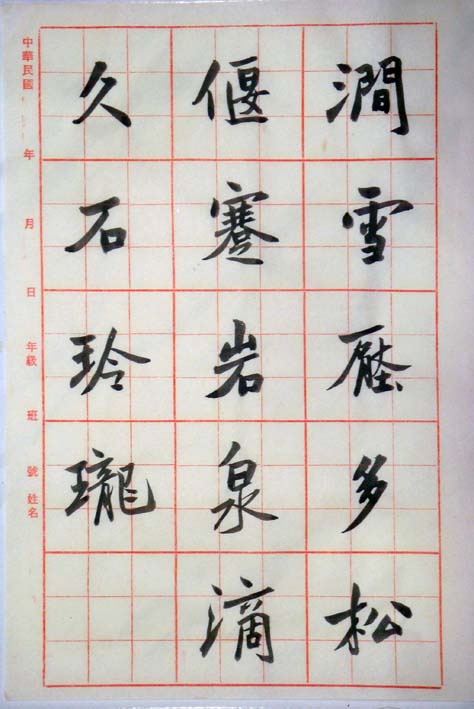 澗雪壓多松
偃蹇岩泉滴
久石玲瓏
中華民國 年 月 日 年級 班 號 姓名